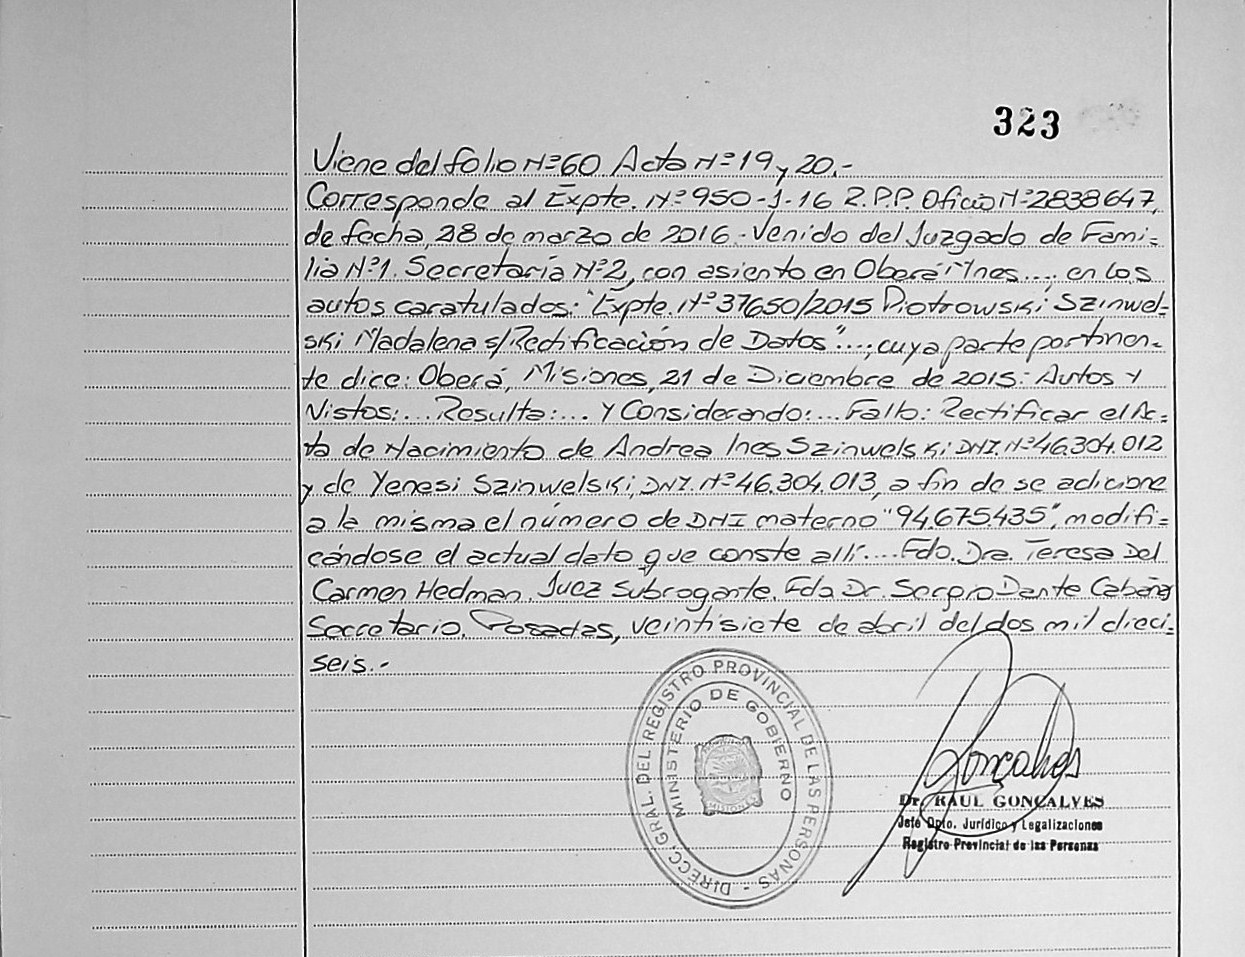 323
Viene del folio Nº60 Acta Nº19 y 20.-
Corresponde al Expte. Nº950-J-16 R.P.P. Oficio Nº2838647,
de fecha, 28 de marzo de 2016.-Venido del Juzgado de Fami-
lia Nº1. Secretaría Nº2, con asiento en Oberá Mnes...; en los
autos caratulados: "Expte. Nº37650/2015 Piotrowski Szinwel-
ski Madalena s/Rectificación de Datos"...; cuya parte portinen-
te dice: Oberá, Misiones, 21 de Diciembre de 2015: Autos y
Vistos:... Resulta:... Y Considerando:... Fallo: Rectificar el Ac-
ta de Nacimiento de Andrea Ines Szinwelski DNI. Nº46.304.012
y de Yenesi Szinwelski, DNI. Nº46.304.013, a fin de se adicione
a la misma el número de DNI materno "94.675.435", modifi-
cándose el actual dato que conste allí.... Fdo. Dra. Teresa Del
Carmen Hedman. Juez Subrogante. Fdo Dr. Sergio Dante
Secretario. Posadas, veintisiete de abril del dos mil dieci-
seis.-
DIRECC. GRAL. DEL REGISTRO PROVINCIAL DE LAS PERSONAS -
MINISTERIO DE GOBIERNO
MISIONES
Gonçalves
Dr. RAUL GONÇALVES
Jefe Dpto. Jurídico y Legalizaciones
Registro Provincial de las Personas